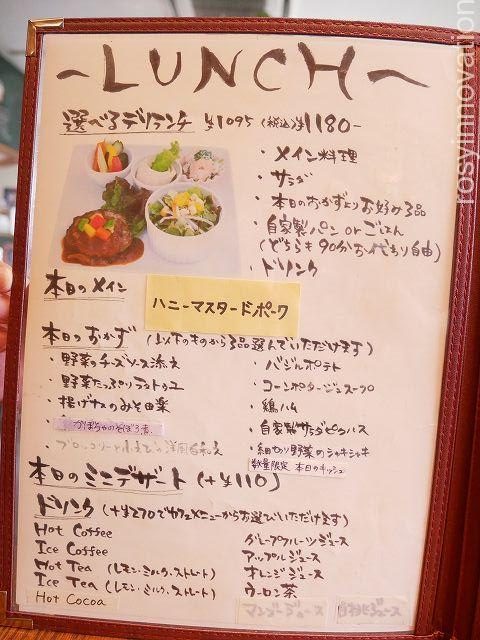 ~LUNCH~
選べるデリランチ ¥1095 (税込)¥1180-
・メイン料理
・サラダ
・本日のおかずよりお好み3品
・自家製パン or ごはん
(どちらも90分お代わり自由)
・ドリンク
本日のメイン
ハニーマスタードポーク
本日のおかず (以下のものから3品選んでいただけます)
・野菜のチーズソース添え
・野菜たっぷりラタトゥユ
・揚げナスのみそ田楽
かぼちゃのそぼろ煮
・ブロッコリーと小えびの洋風
・バジルポテト
・コーンポタージュスープ
・鶏ハム
・自家製サラダピクルス
・細切り野菜のシャキシャキ
数量限定 本日のキッシュ
本日のミニデザート (+¥110)
ドリンク (+¥270でカフェメニューからお選びいただけます)
Hot Coffee
Ice Coffee
Hot Tea (レモン・ミルク・ストレート)
Ice Tea (レモン・ミルク・ストレート)
Hot Cocoa
グレープフルーツジュース
アップルジュース
オレンジジュース
ウーロン茶
マンゴージュース
rosyinnovation